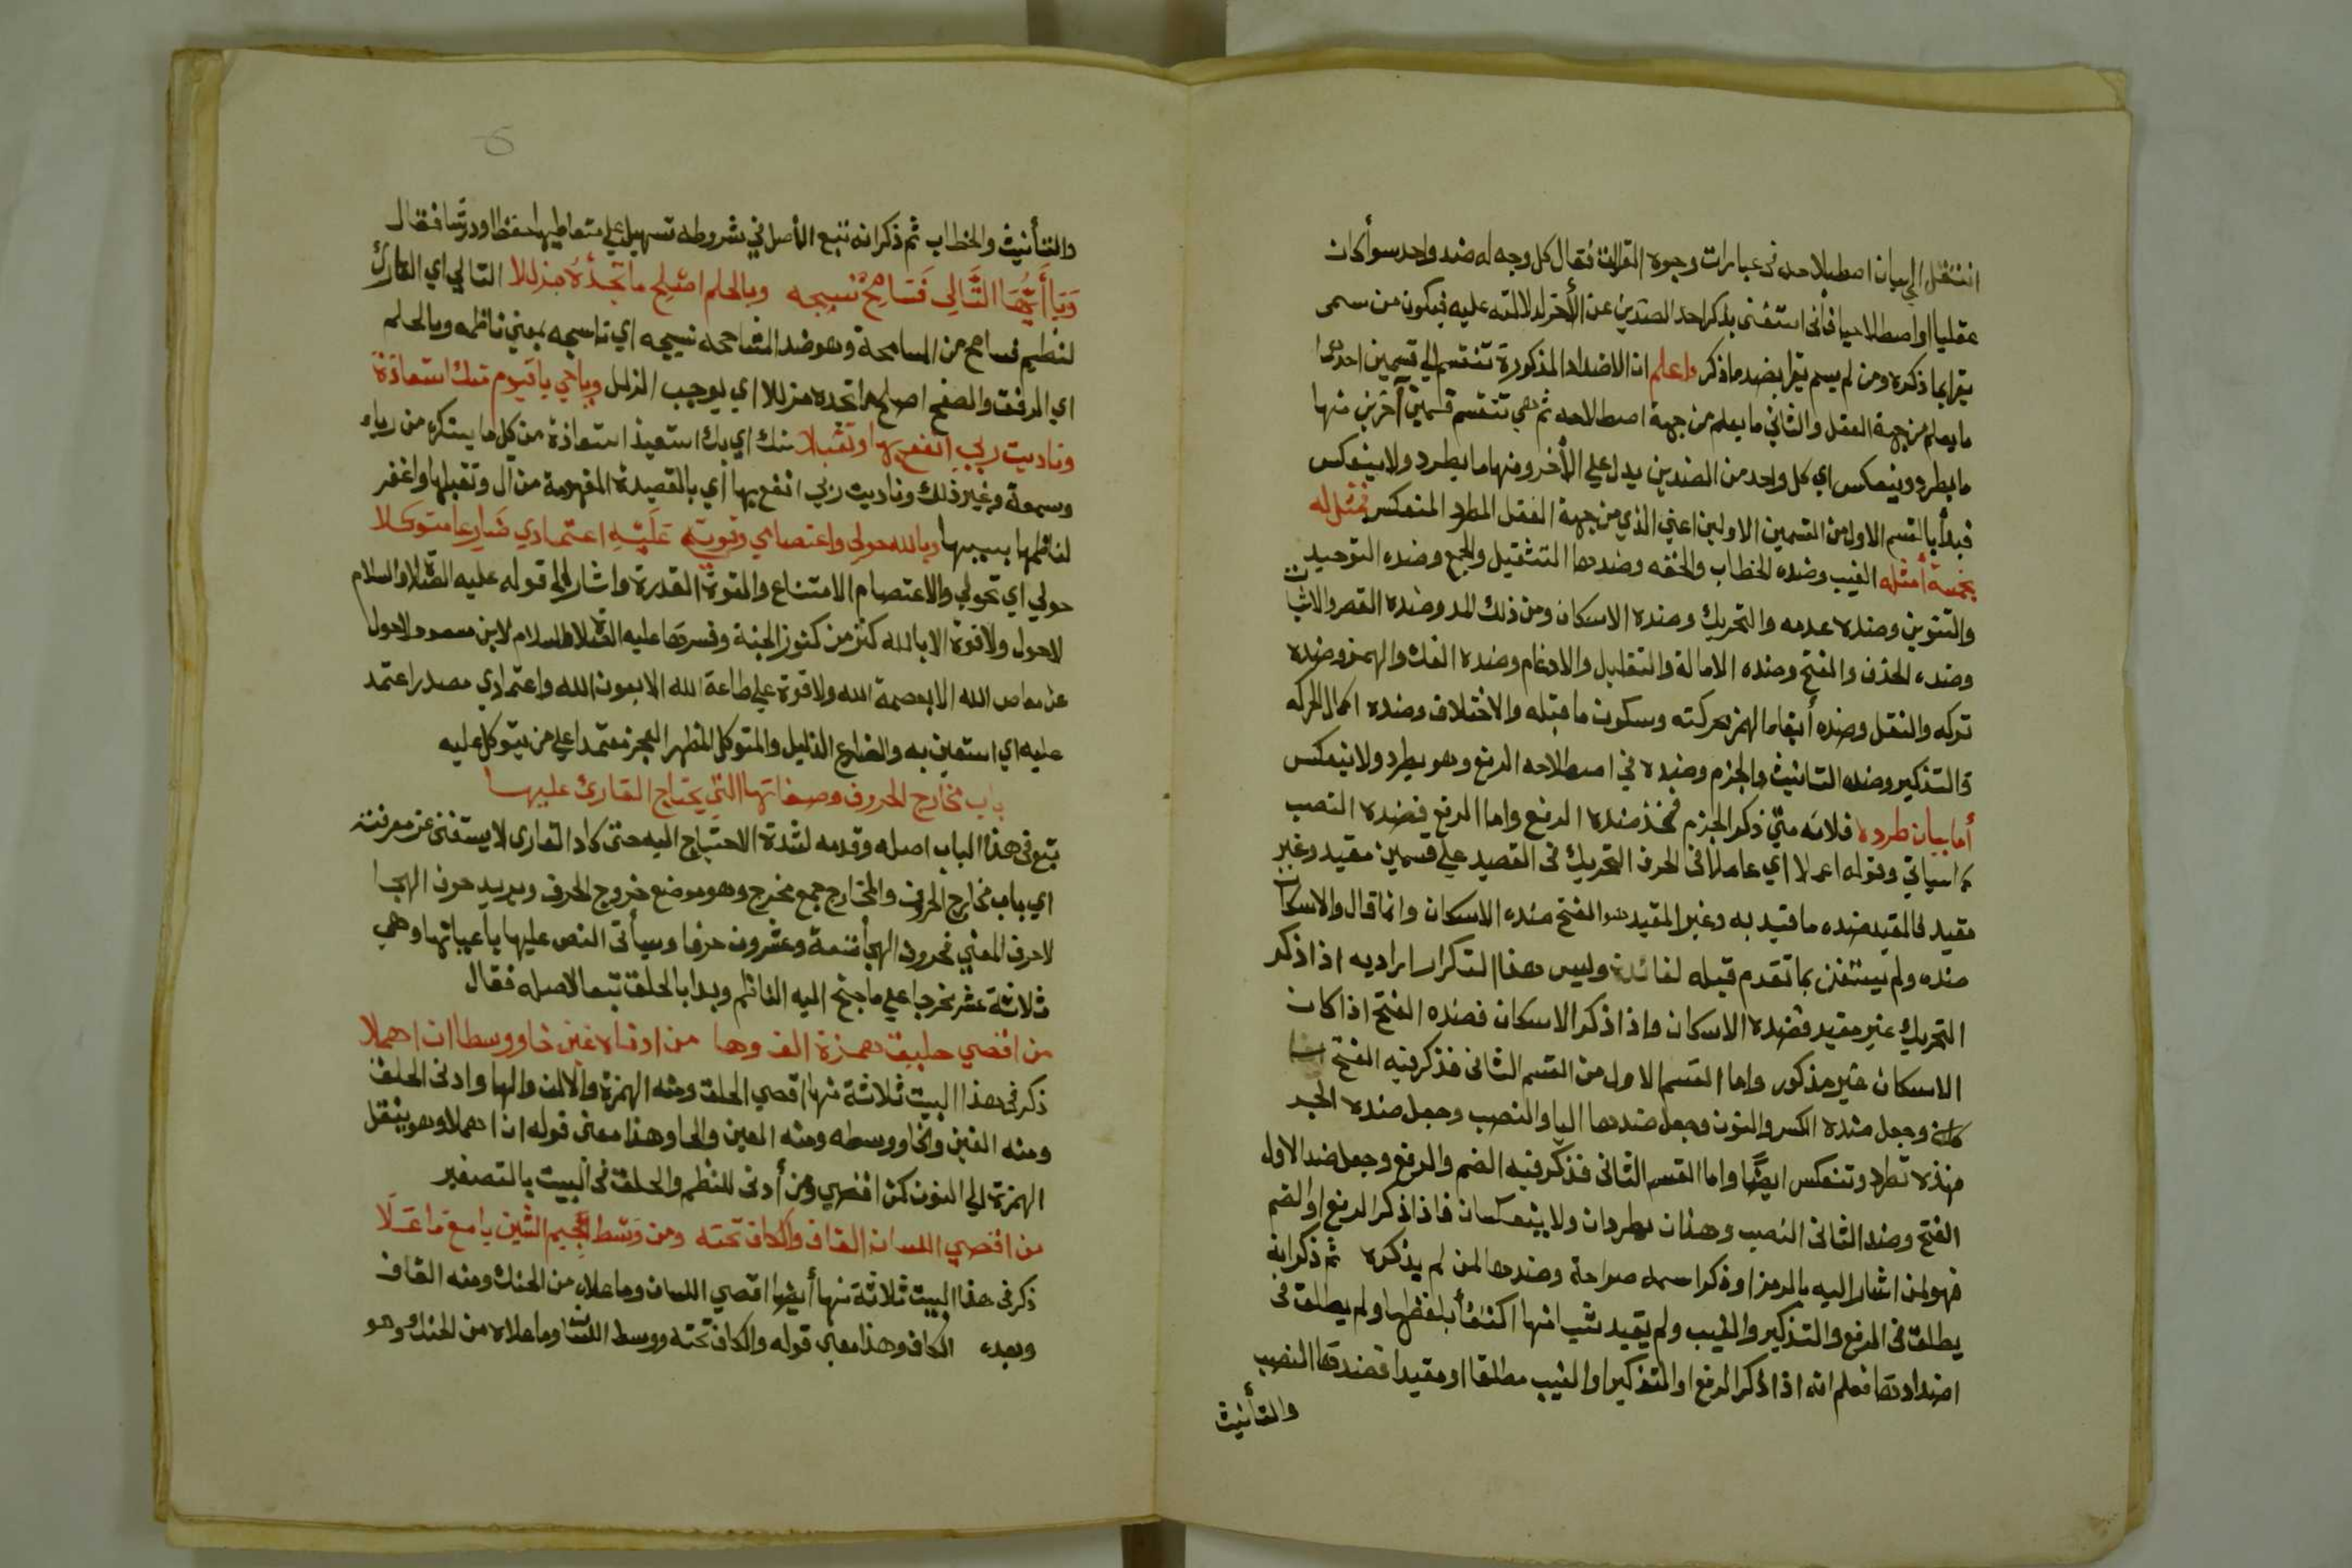 انتقل الى بيان اصطلاحه فى عبارات وجوه القراات فقال كل وجه له ضد واحد سوأ كان
عقليا او اصطلاحيا فانى استغنى بذكر احد الضدين عن الأخر لدلالته عليه فيكون من سمى
يقرا بما ذكره ومن لم يسم يقرا بضد ما ذكر واعلم ان الاضداد المذكورة تنقسم الي قسمين احدها
ما يعلم من جهة العقل والثاني ما يعلم من جهة اصطلاحه ثم هي تنقسم قسمين آخرين منها
ما يطرد وينعكس اي كل واحد من الضدين يدل علي الأخر ومنها ما يطرد ولا ينعكس
فبدأ بالقسم الاول من القسمين الاولين اعني الذي من جهة العقل المطرد المنعكس فمثل له
بخمسة أمثله الغيب وضده الخطاب والخفه وضدها التثقيل والجمع وضده التوحيد
والتنوين وضده عدمه والتحريك وضده الاسكان ومن ذلك المد وضده القصر والاثبات
وضده الحذف والفتح وضده الامالة والتقليل والادغام وضده الفك والهمز وضده
تركه والنقل وضده أبقاء الهمز بحركته وسكون ما قبله والاختلاف وضده اكمال الحركه
والتذكير وضده التانيث والجزم وضده في اصطلاحه الرفع وهو يطرد ولا ينعكس
أما بيان طرده فلانه متي ذكر الجزم فخذ ضده الرفع واما الرفع فضده النصب
كما سياتي وقوله اعملا اي عاملا فى الحرف التحريك فى القصيد علي قسمين مقيد وغير
مقيد فالمقيد ضده ما قيد به وغير المقيد هو الفتح ضده الاسكان وانما قال والاسكان
ضده ولم يستغن بما تقدم قبله لفائدة وليس هذا التكرار ايراد به اذا ذكر
التحريك غير مقيد فضده الاسكان واذا ذكر الاسكان فضده الفتح اذا كان
الاسكان غير مذكور واما القسم الاول من القسم الثانى فذكر فيه الفتح
وجعل ضده الكسر والنون وجعل ضدها اليا والنصب وجعل ضده الجر
فهذه تطرد وتنعكس ايضًا واما القسم الثانى فذكر فيه الضم والرفع وجعل ضد الاول
الفتح وضد الثانى النصب وهذان يطردان ولا ينعكسان فاذا ذكر الرفع او الضم
فهو لمن اشار اليه بالرمز او ذكر اسمه صراحة وضدها لمن لم يذكره ثم ذكر انه
يطلق فى الرفع والتذكير والغيب ولم يقيد شيا منها اكتفأ بلفظها ولم يطلق فى
اضدادها فعلم انه اذا ذكر الرفع او التذكير او الغيب مطلقا او مقيدا فضدها النصب
والتأنيث
والتأنيث والخطاب ثم ذكر انه تتبع الأصل في شروطه تسهيل علي متعاطيها حفظا ودرسًا فقال
وَيَا أَيُّهَا التَّالِي فَسَامِحْ نسيجه وبالحلم اصلِح ما تجدْهُ مزللا التالي اي القارئ
لنظمي فسامح من المسامحة وهو ضد المشاححه نسيجه اي ناسجه بمعني ناظمه وبالحلم
اي الرفق والصفح اصلح ما تجده مزللا اي يوجب الزلل وياحي يا قيوم منك استعاذة
وناديت ربي انفع بها وتقبلا منك اي بك استعيذ استعاذة من كل ما يستكره من رياء
وسمعة وغير ذلك وناديت ربي انفع بها أي بالقصيدة المفهومة من آل وتقبلها واغفر
لناظمها بسببها وبالله حولي واعتصامي وقوتي عَلَيْهِ اعتمادي ضارعا متوكلا
حولي اي تحولي والاعتصام الامتناع والقوة القدرة واشار الي قوله عليه الصلاة والسلام
لاحول ولا قوة الا بالله كنز من كنوز الجنة وفسرها عليه الصلاة والسلام لابن مسعود لاحول
عن معاصي الله الا بعصمة الله ولا قوة علي طاعة الله الا بعون الله واعتمادي مصدر اعتمد
عليه اي استعين به والضارع الذليل والمتوكل المظهر العجز معتمدا علي من يتوكل عليه
باب مخارج الحروف وصفاتها التي يحتاج القارئ عليها
تبع فى هذا الباب اصله وقدمه لشدة الاحتياج اليه حتى كاد القارى لا يستغنى عن معرفته
اي باب مخارج الحروف والمخارج جمع مخرج وهو موضع خروج الحرف ويريد حرف الهجا
لا حرف المعني فحروف الهجأ تسعة وعشرون حرفا وسيأتى النص عليها باعيانها وهي
ثلاثة عشر مخرجا علي ما جنح اليه الناظم وبدا بالحلق تبعا لاصله فقال
من اقصي حليق همزة الف وها من ادناه غين خا ووسطا ان اهملا
ذكر فى هذا البيت ثلاثة منها اقصي الحلق ومنه الهمزة والالف والها وادنى الحلق
ومنه الغين والخا ووسطه ومنه العين والحا وهذا معنى قوله ان اهملا وهو بنقل
الهمزة الي النون كمن اقصي ومن أدنى للنظم والحلق فى البيت بالتصغير
من اقصي اللسان القاف والكاف تحته ومن وَسَط الجيم الشين يا مع ما عَلَا
ذكر فى هذا البيت ثلاثة منها أيضا اقصي اللسان وما علاه من الحنك ومنه القاف
وبعده الكاف وهذا معني قوله والكاف تحته ووسط اللسان وما علاه من الحنك وهو